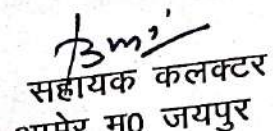 सहायक कलक्टर
आमेर म0 जयपुर